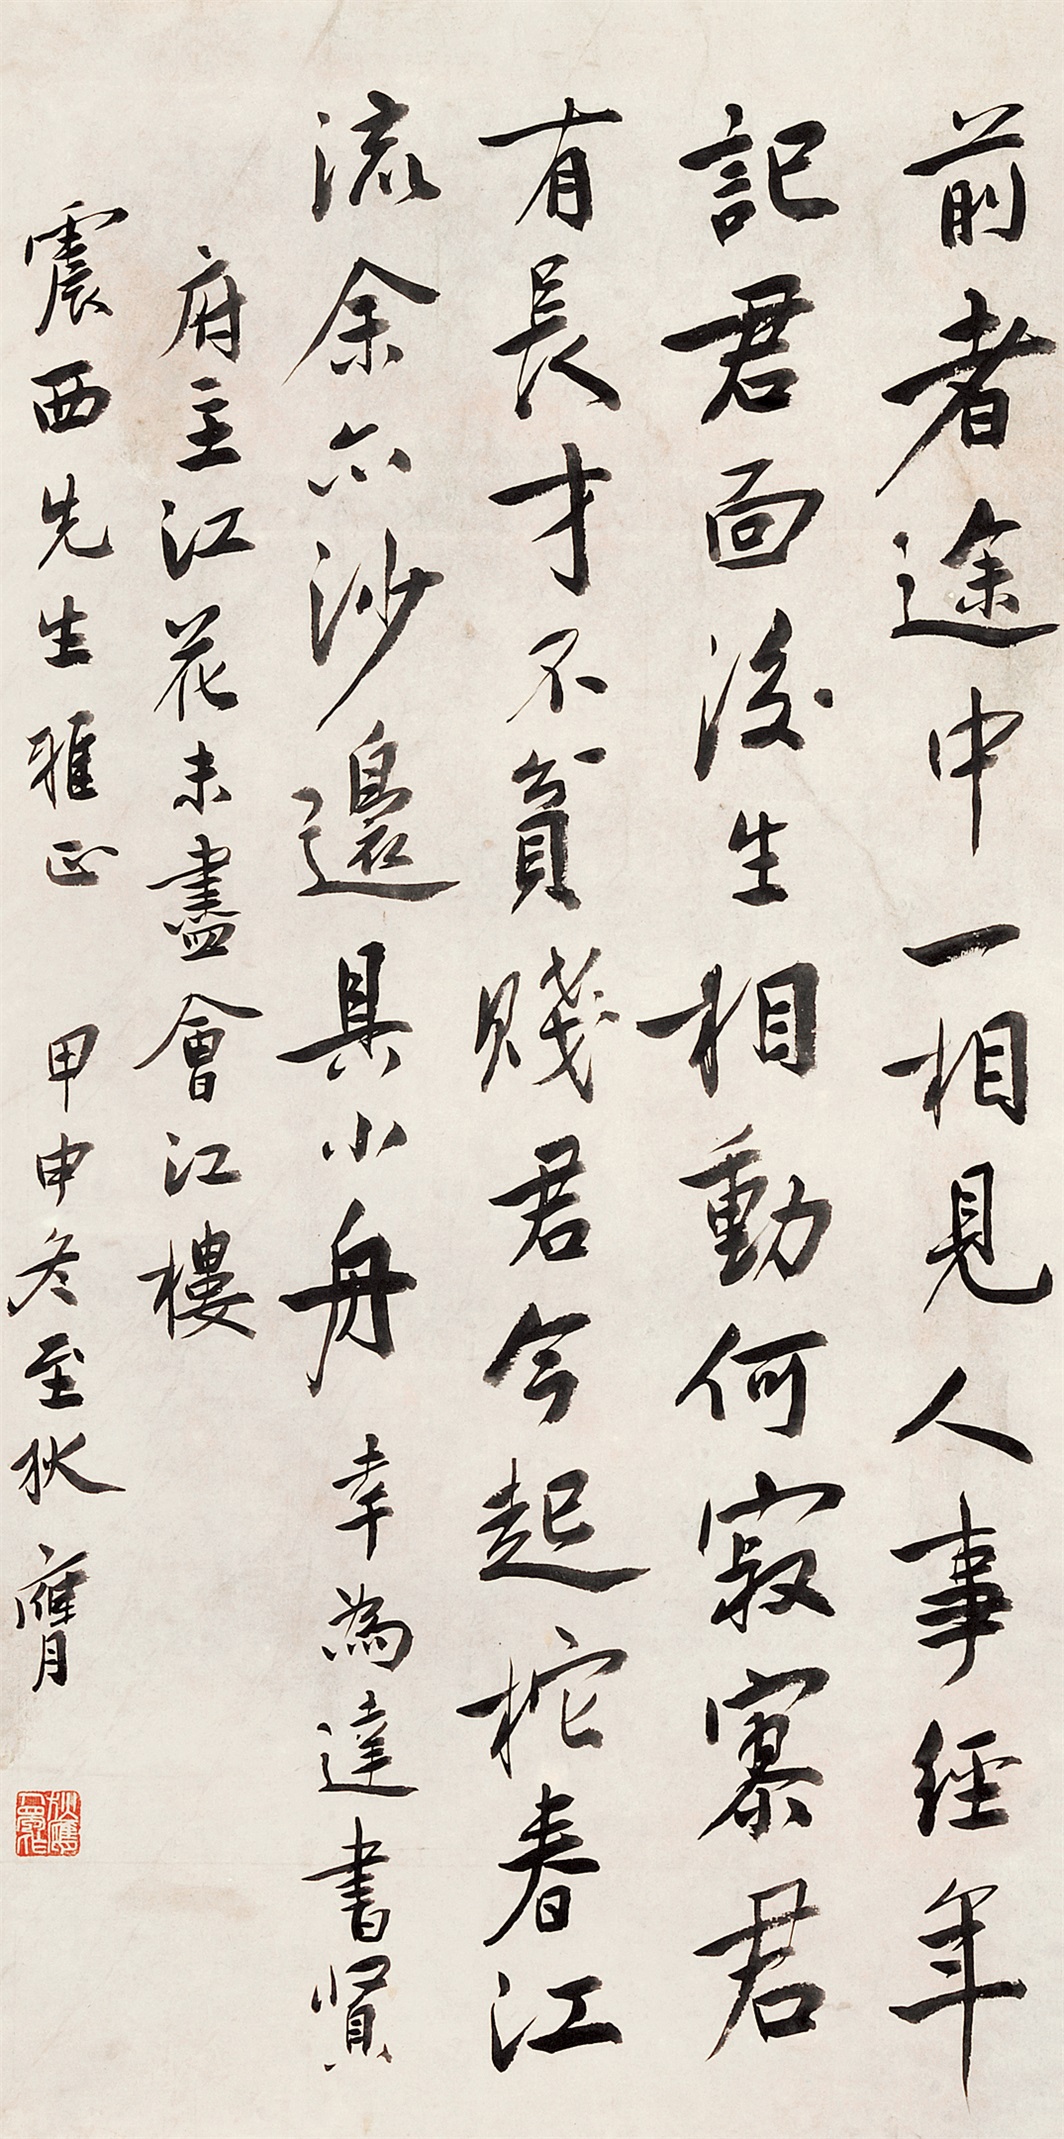 前者途中一相見人事經年
記君面後生相動何寂寞君
有長才不貧賤君今起柁春江
流余亦沙邊具小舟幸為達書賢
府主江花未盡會江樓
震西先生雅正 甲申冬至狄膺